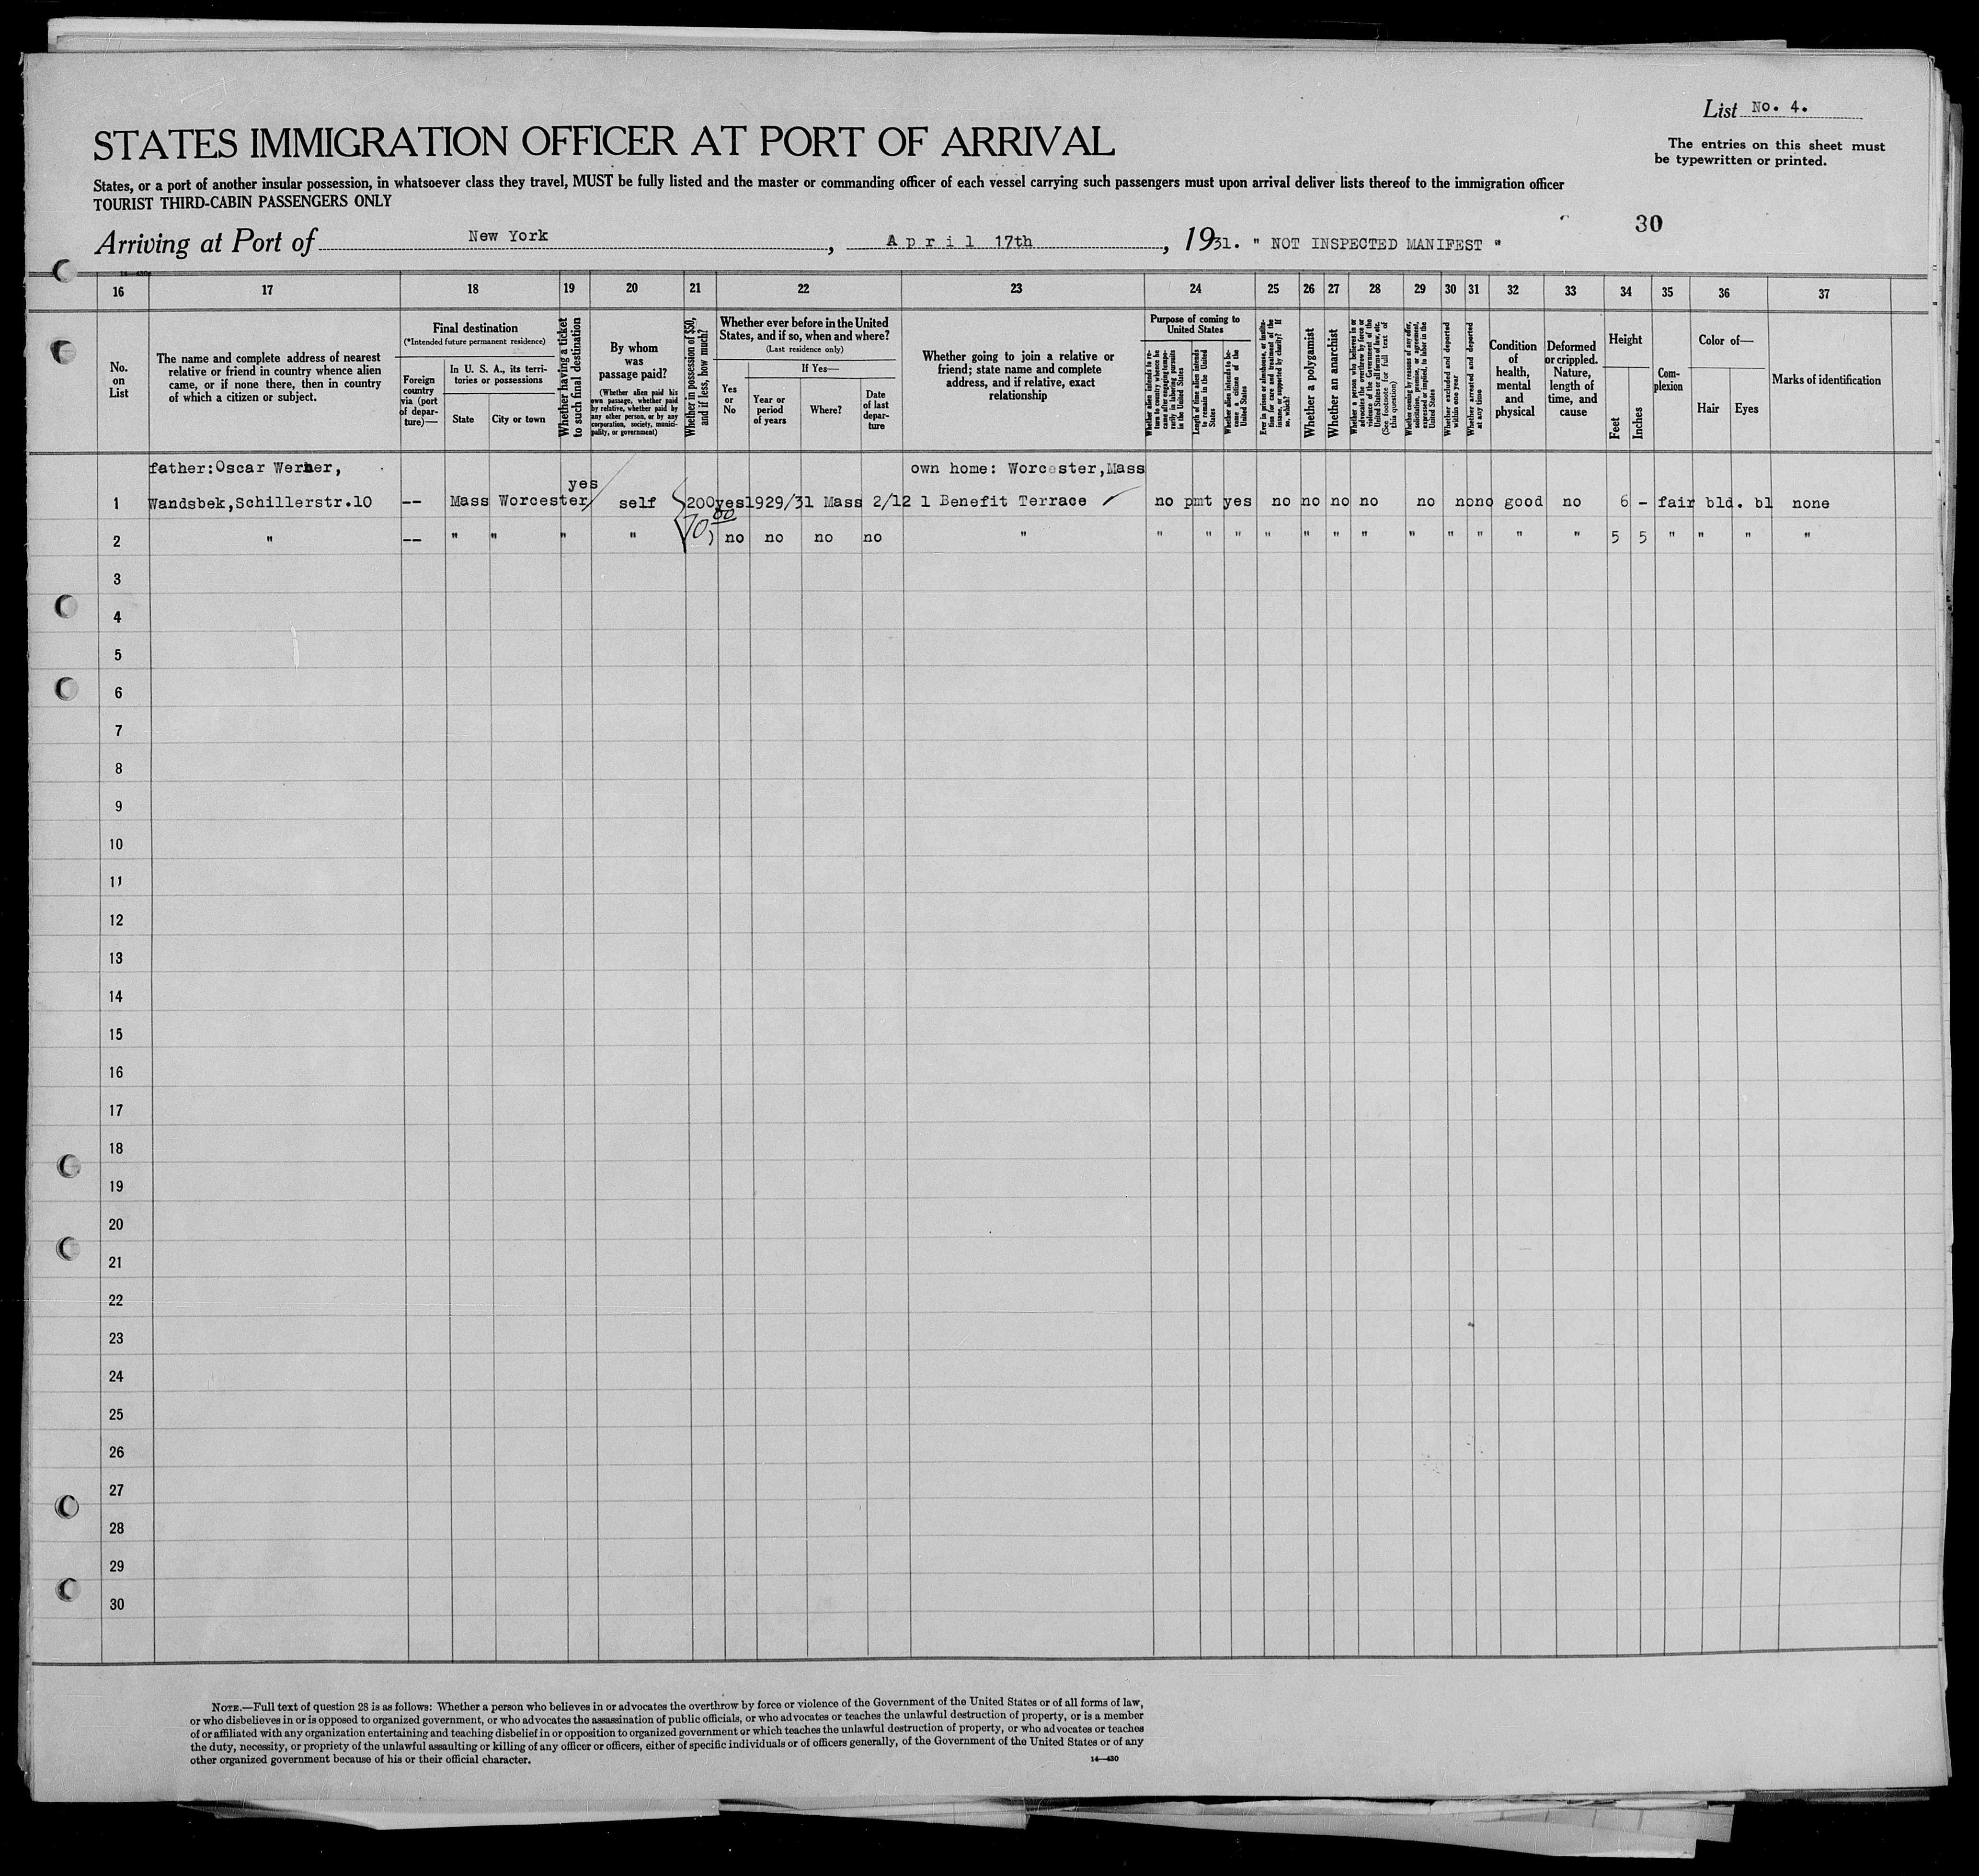 List No. 4.
STATES IMMIGRATION OFFICER AT PORT OF ARRIVAL
The entries on this sheet must
be typewritten or printed.
States, or a port of another insular possession, in whatsoever class they travel, MUST be fully listed and the master or commanding officer of each vessel carrying such passengers must upon arrival deliver lists thereof to the immigration officer
TOURIST THIRD-CABIN PASSENGERS ONLY
30
Arriving at Port of New York, April 17th, 1931. " NOT INSPECTED MANIFEST "
14—430
16 17 18 19 20 21 22 23 24 25 26 27 28 29 30 31 32 33 34 35 36 37
No.
on
List
The name and complete address of nearest
relative or friend in country whence alien
came, or if none there, then in country
of which a citizen or subject.
Final destination
(*Intended future permanent residence)
Foreign
country
via (port
of depar-
ture)—
In U. S. A., its terri-
tories or possessions
State City or town
Whether having a ticket
to such final destination
By whom
was
passage paid?
(Whether alien paid his
own passage, whether paid
by relative, whether paid by
any other person, or by any
corporation, society, munici-
pality, or government)
Whether in possession of $50,
and if less, how much?
Whether ever before in the United
States, and if so, when and where?
(Last residence only)
Yes
or
No
If Yes—
Year or
period
of years
Where?
Date
of last
depar-
ture
Whether going to join a relative or
friend; state name and complete
address, and if relative, exact
relationship
Purpose of coming to
United States
Whether alien intends to re-
turn to country whence he
came after engaging tempo-
rarily in laboring pursuits
in the United States
Length of time alien intends
to remain in the United
States
Whether alien intends to be-
come a citizen of the
United States
Ever in prison or almshouse, or institu-
tion for care and treatment of the
insane, or supported by charity? If
so, which?
Whether a polygamist
Whether an anarchist
Whether a person who believes in or
advocates the overthrow by force or
violence of the Government of the
United States or all forms of law, etc.
(See footnote for full text of
this question)
Whether coming by reasons of any offer,
solicitation, promise, or agreement,
expressed or implied, to labor in the
United States
Whether excluded and deported
within one year
Whether arrested and deported
at any time
Condition
of
health,
mental
and
physical
Deformed
or crippled.
Nature,
length of
time, and
cause
Height
Feet
Inches
Com-
plexion
Color of—
Hair Eyes
Marks of identification
father:Oscar Werner, yes own home: Worcester,Mass
1 Wandsbek,Schillerstr.10 -- Mass Worcester/ self 200 yes 1929/31 Mass 2/12 1 Benefit Terrace no pmt yes no no no no no no no good no 6 - fair bld. bl none
2 " -- " " " " no no no no " " " " " " " " " " " " " 5 5 " " " "
3
4
5
6
7
8
9
10
11
12
13
14
15
16
17
18
19
20
21
22
23
24
25
26
27
28
29
30
NOTE.—Full text of question 28 is as follows: Whether a person who believes in or advocates the overthrow by force or violence of the Government of the United States or of all forms of law,
or who disbelieves in or is opposed to organized government, or who advocates the assassination of public officials, or who advocates or teaches the unlawful destruction of property, or is a member
of or affiliated with any organization entertaining and teaching disbelief in or opposition to organized government or which teaches the unlawful destruction of property, or who advocates or teaches
the duty, necessity, or propriety of the unlawful assaulting or killing of any officer or officers, either of specific individuals or of officers generally, of the Government of the United States or of any
other organized government because of his or their official character.
14—430